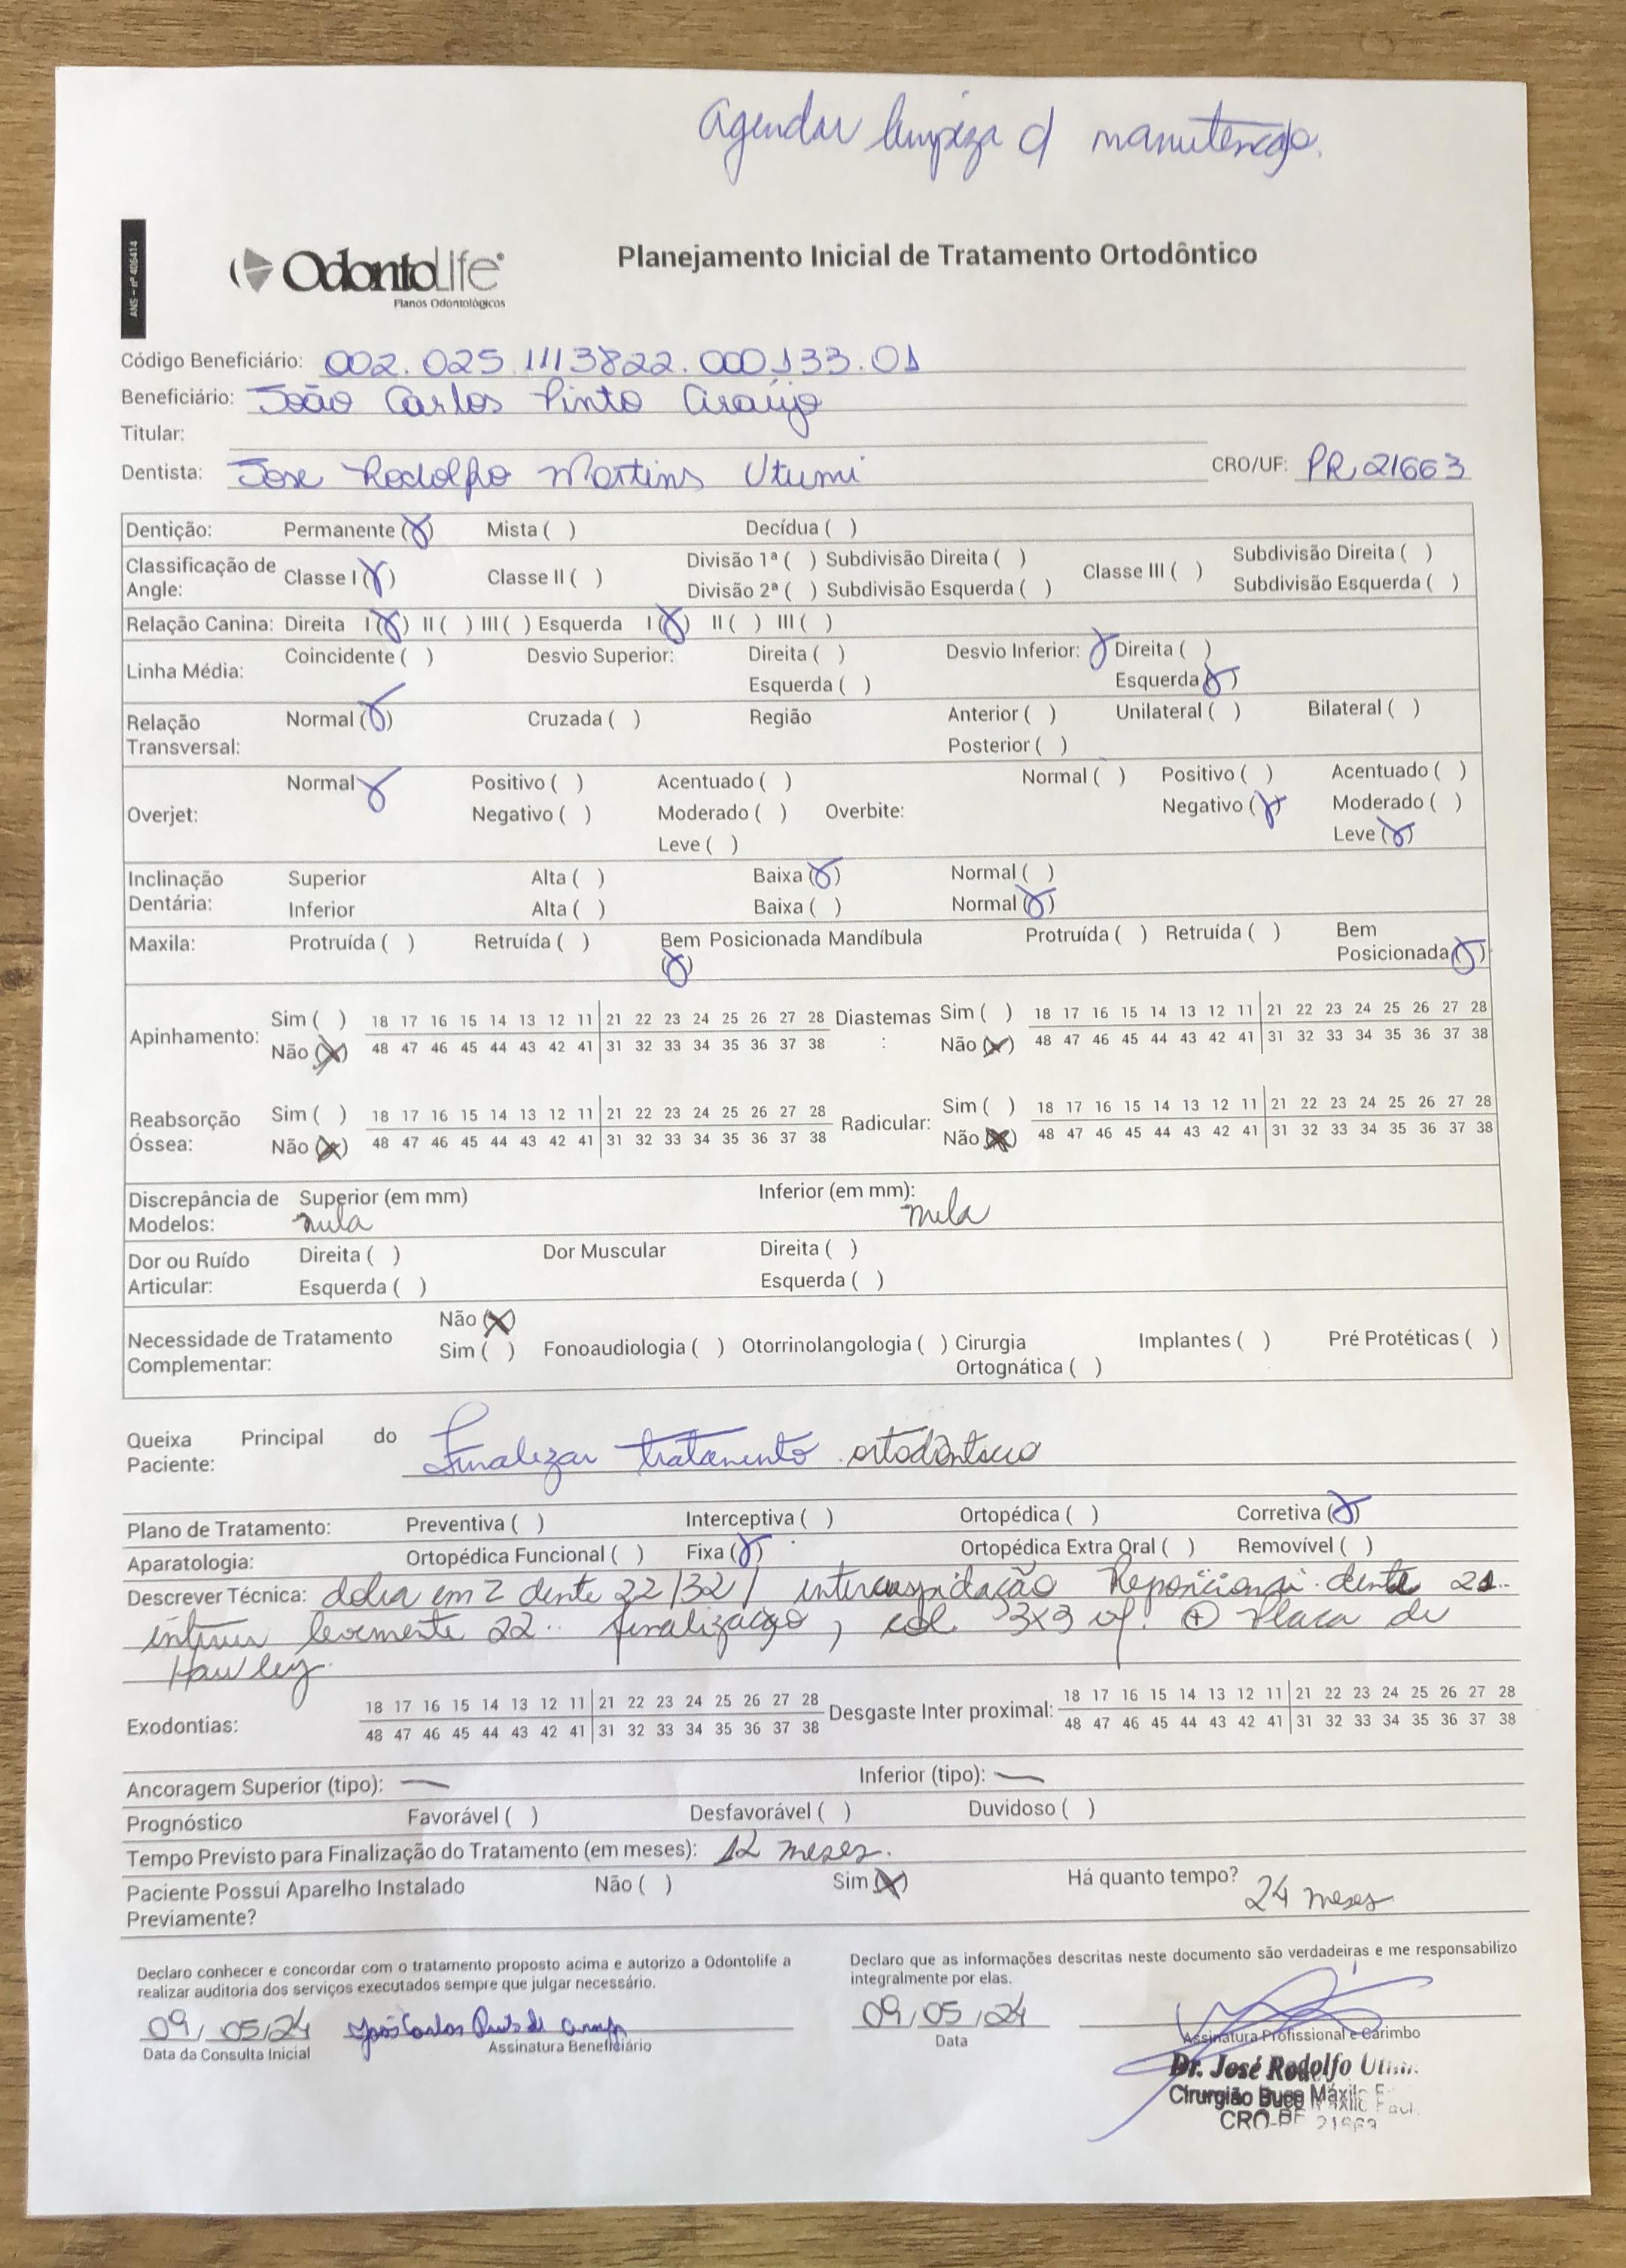 Agendar limpeza c/ manutenção.
ANS - nº 406414
OdontoLife®
Planos Odontológicos
Planejamento Inicial de Tratamento Ortodôntico
Código Beneficiário: 002.025.1113822.000133.01
Beneficiário: João Carlos Pinto Araújo
Titular:
Dentista: Jose Rodolfo Martins Utumi CRO/UF: PR 21663
Dentição: Permanente (X) Mista ( ) Decídua ( )
Classificação de Angle: Classe I (X) Classe II ( ) Divisão 1ª ( ) Subdivisão Direita ( ) Classe III ( ) Subdivisão Direita ( )
Divisão 2ª ( ) Subdivisão Esquerda ( ) Subdivisão Esquerda ( )
Relação Canina: Direita I (X) II ( ) III ( ) Esquerda I (X) II ( ) III ( )
Linha Média: Coincidente ( ) Desvio Superior: Direita ( ) Desvio Inferior: X Direita ( )
Esquerda ( ) Esquerda (X)
Relação Transversal: Normal (X) Cruzada ( ) Região Anterior ( ) Unilateral ( ) Bilateral ( )
Posterior ( )
Overjet: Normal X Positivo ( ) Acentuado ( ) Overbite: Normal ( ) Positivo ( ) Acentuado ( )
Negativo ( ) Moderado ( ) Negativo (X) Moderado ( )
Leve ( ) Leve (X)
Inclinação Dentária: Superior Alta ( ) Baixa (X) Normal ( )
Inferior Alta ( ) Baixa ( ) Normal (X)
Maxila: Protruída ( ) Retruída ( ) Bem Posicionada (X) Mandíbula Protruída ( ) Retruída ( ) Bem Posicionada (X)
Apinhamento: Sim ( ) 18 17 16 15 14 13 12 11 21 22 23 24 25 26 27 28 Diastemas : Sim ( ) 18 17 16 15 14 13 12 11 21 22 23 24 25 26 27 28
Não (X) 48 47 46 45 44 43 42 41 31 32 33 34 35 36 37 38 Não (X) 48 47 46 45 44 43 42 41 31 32 33 34 35 36 37 38
Reabsorção Óssea: Sim ( ) 18 17 16 15 14 13 12 11 21 22 23 24 25 26 27 28 Radicular: Sim ( ) 18 17 16 15 14 13 12 11 21 22 23 24 25 26 27 28
Não (X) 48 47 46 45 44 43 42 41 31 32 33 34 35 36 37 38 Não (X) 48 47 46 45 44 43 42 41 31 32 33 34 35 36 37 38
Discrepância de Modelos: Superior (em mm) nula Inferior (em mm): nula
Dor ou Ruído Articular: Direita ( ) Dor Muscular Direita ( )
Esquerda ( ) Esquerda ( )
Necessidade de Tratamento Complementar: Não (X)
Sim ( ) Fonoaudiologia ( ) Otorrinolangologia ( ) Cirurgia Ortognática ( ) Implantes ( ) Pré Protéticas ( )
Queixa Principal do Paciente: Finalizar tratamento ortodôntico
Plano de Tratamento: Preventiva ( ) Interceptiva ( ) Ortopédica ( ) Corretiva (X)
Aparatologia: Ortopédica Funcional ( ) Fixa (X) Ortopédica Extra Oral ( ) Removível ( )
Descrever Técnica: dobra em Z dente 22/32/ intercuspidação Reposicionar dente 21..
levemente 22.. finalização, 3x3 ⊕ Placa de
Hawley
Exodontias: 18 17 16 15 14 13 12 11 21 22 23 24 25 26 27 28 Desgaste Inter proximal: 18 17 16 15 14 13 12 11 21 22 23 24 25 26 27 28
48 47 46 45 44 43 42 41 31 32 33 34 35 36 37 38 48 47 46 45 44 43 42 41 31 32 33 34 35 36 37 38
Ancoragem Superior (tipo): — Inferior (tipo): —
Prognóstico Favorável ( ) Desfavorável ( ) Duvidoso ( )
Tempo Previsto para Finalização do Tratamento (em meses): 12 meses.
Paciente Possui Aparelho Instalado Previamente? Não ( ) Sim (X) Há quanto tempo? 24 meses
Declaro conhecer e concordar com o tratamento proposto acima e autorizo a Odontolife a
realizar auditoria dos serviços executados sempre que julgar necessário.
Declaro que as informações descritas neste documento são verdadeiras e me responsabilizo
integralmente por elas.
09/05/24 João Carlos Pinto de Araujo
Data da Consulta Inicial Assinatura Beneficiário
09/05/24
Data
Assinatura Profissional e Carimbo
Dr. José Rodolfo
Cirurgião Buco Máxilo
CRO-PR 21663